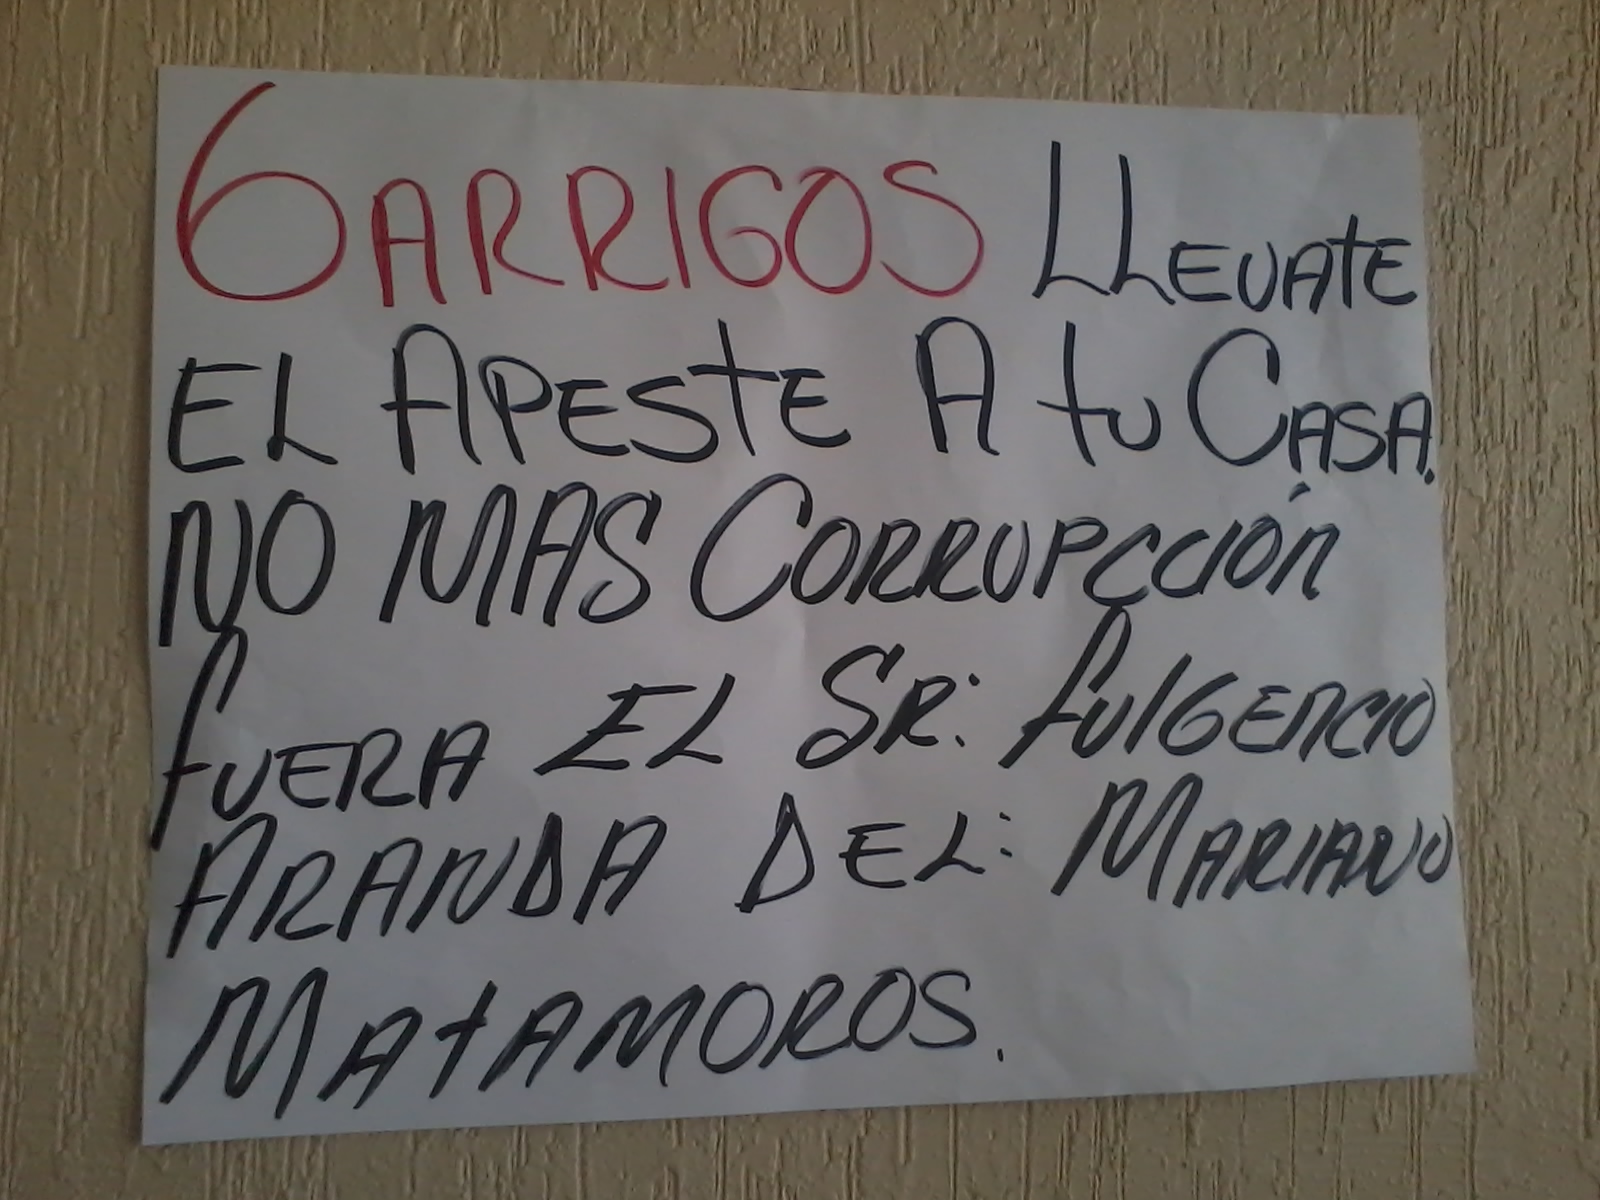 GARRIGOS LLEVATE
EL APESTE A tu CASA.
NO MAS CORRUPCCIÓN
fUERA EL SR: fulGENCIO
ARANDA DEL: MARIANO
MAtAMOROS.